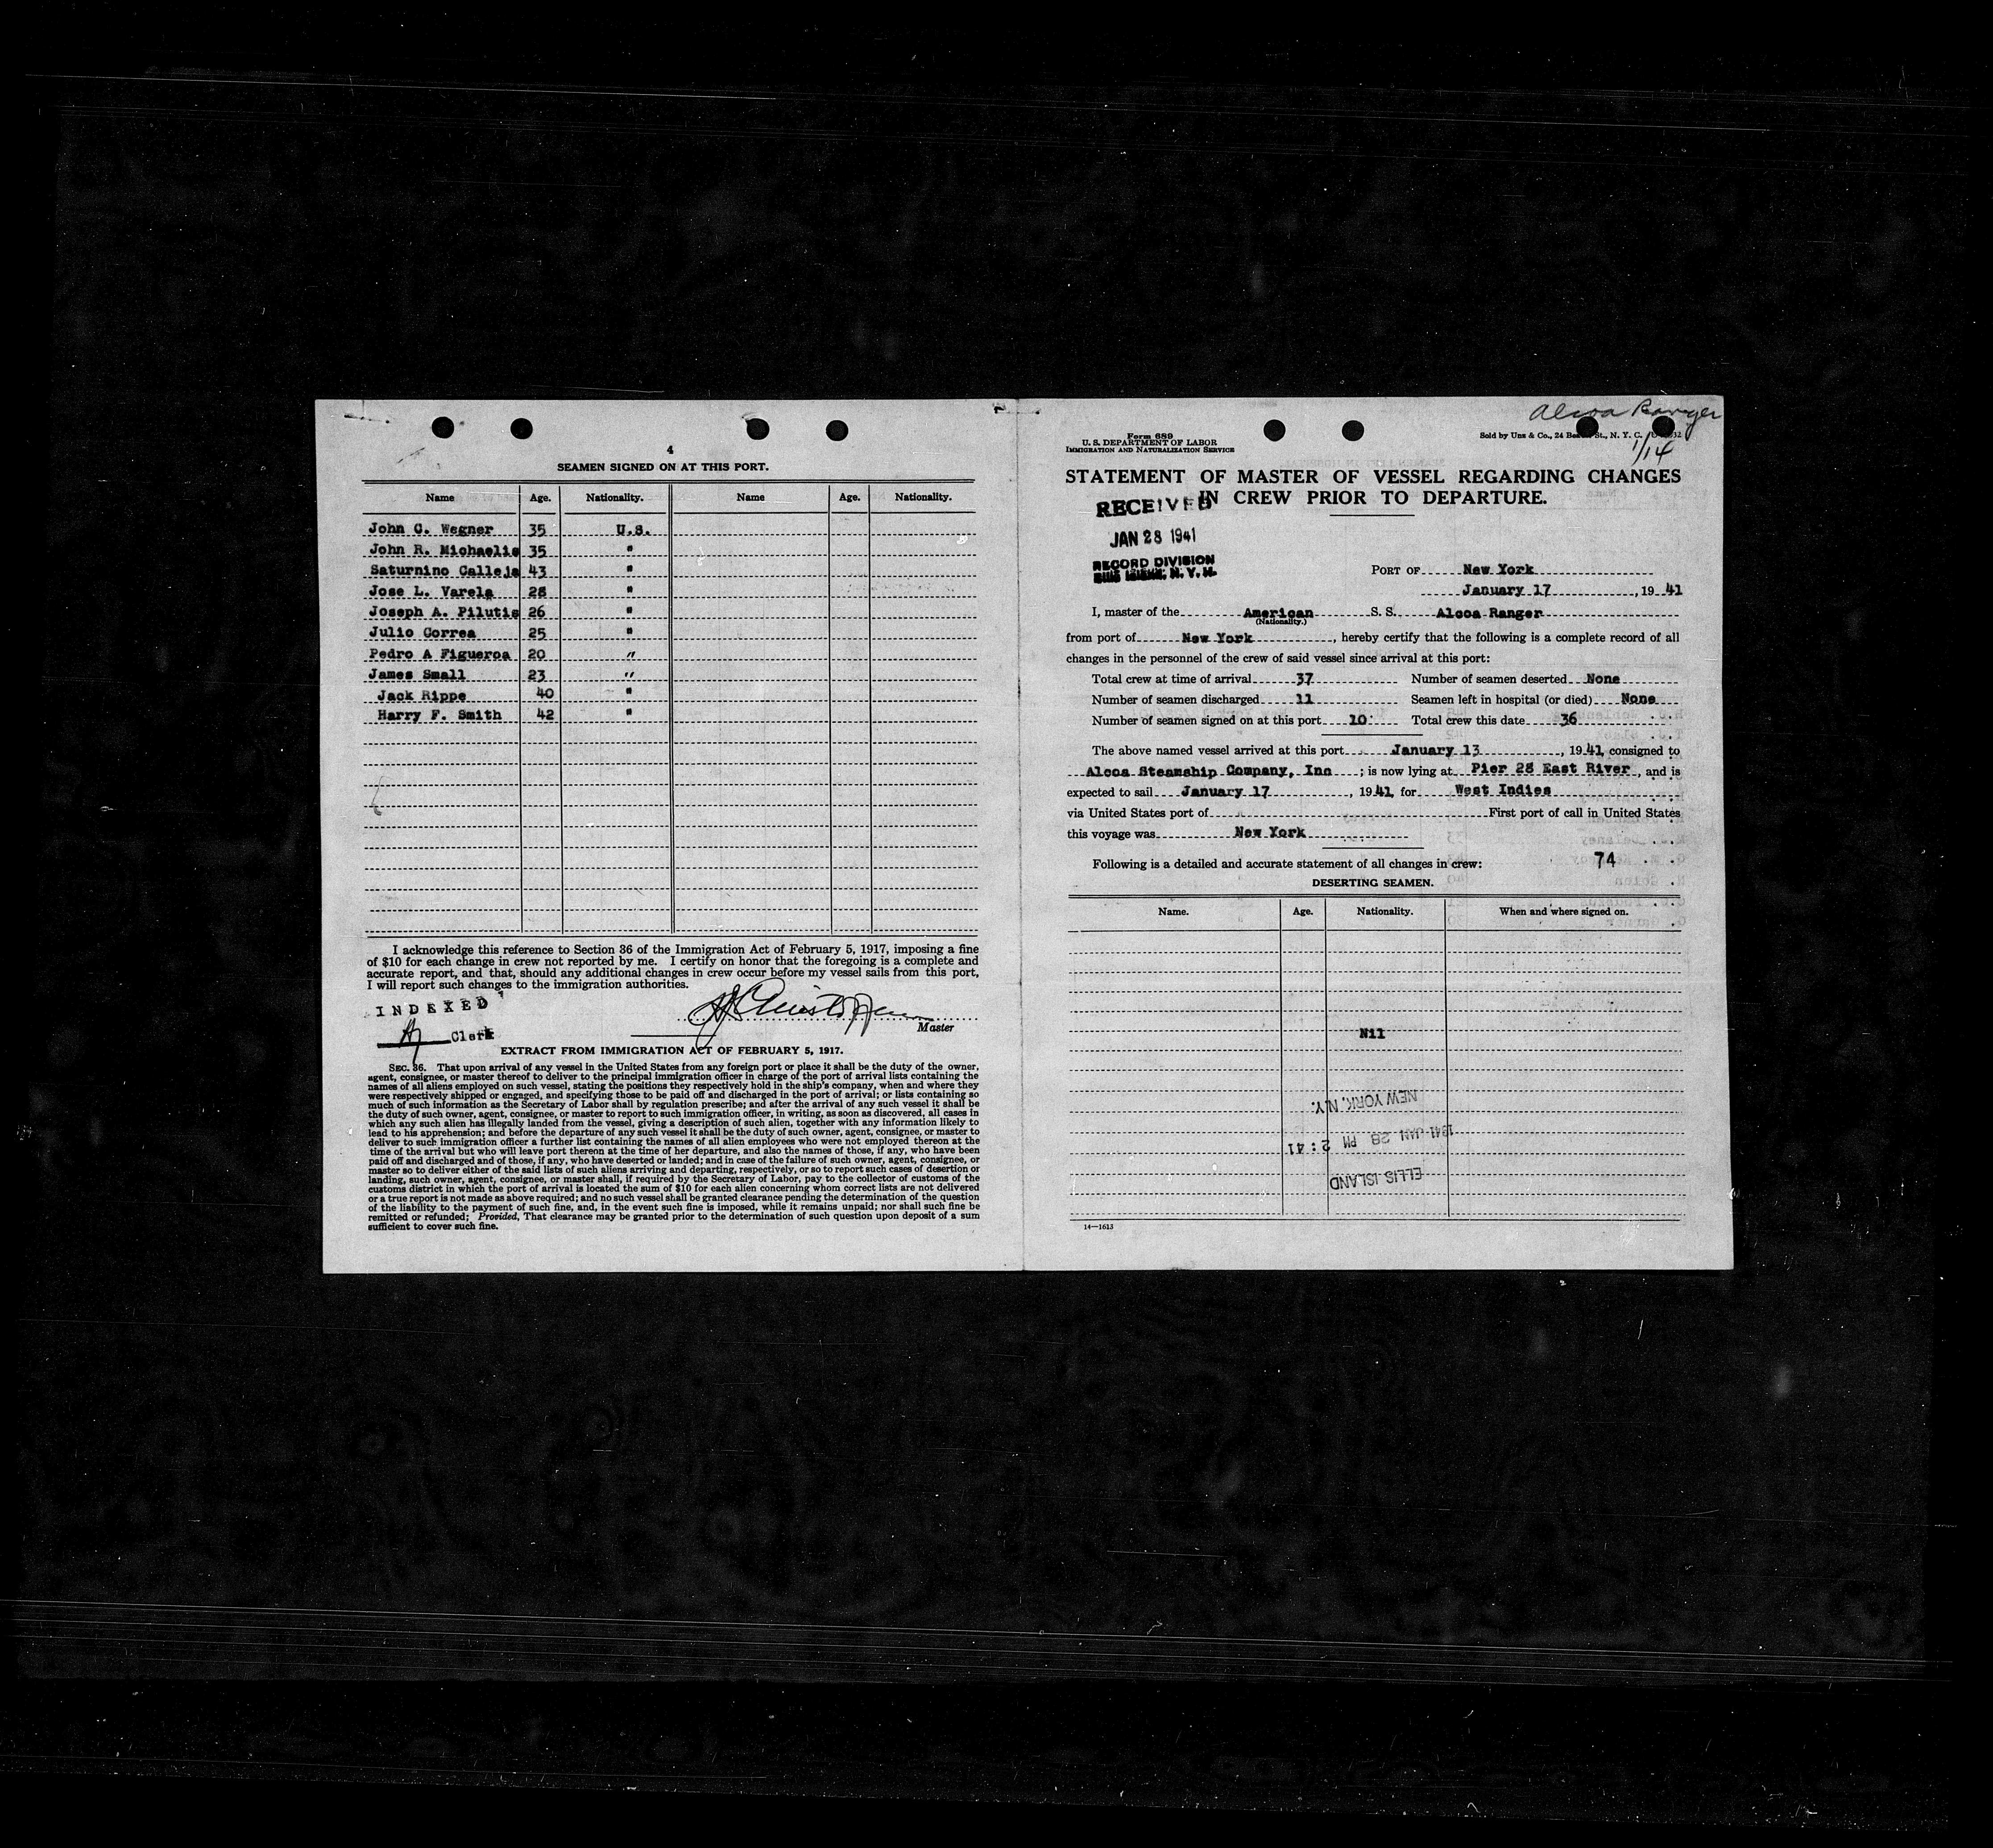 4
SEAMEN SIGNED ON AT THIS PORT.
Name Age. Nationality. Name Age. Nationality.
John C. Wegner 35 U.S.
John R. Michaelis 35 "
Saturnino Calleja 43 "
Jose L. Varela 28 "
Joseph A. Pilutis 26 "
Julio Correa 25 "
Pedro A Figueroa 20 "
James Small 23 "
Jack Rippe 40 "
Harry F. Smith 42 "
I acknowledge this reference to Section 36 of the Immigration Act of February 5, 1917, imposing a fine
of $10 for each change in crew not reported by me. I certify on honor that the foregoing is a complete and
accurate report, and that, should any additional changes in crew occur before my vessel sails from this port,
I will report such changes to the immigration authorities.
INDEXED
Clerk
Master
EXTRACT FROM IMMIGRATION ACT OF FEBRUARY 5, 1917.
SEC. 36. That upon arrival of any vessel in the United States from any foreign port or place it shall be the duty of the owner,
agent, consignee, or master thereof to deliver to the principal immigration officer in charge of the port of arrival lists containing the
names of all aliens employed on such vessel, stating the positions they respectively hold in the ship's company, when and where they
were respectively shipped or engaged, and specifying those to be paid off and discharged in the port of arrival; or lists containing so
much of such information as the Secretary of Labor shall by regulation prescribe; and after the arrival of any such vessel it shall be
the duty of such owner, agent, consignee, or master to report to such immigration officer, in writing, as soon as discovered, all cases in
which any such alien has illegally landed from the vessel, giving a description of such alien, together with any information likely to
lead to his apprehension; and before the departure of any such vessel it shall be the duty of such owner, agent, consignee, or master to
deliver to such immigration officer a further list containing the names of all alien employees who were not employed thereon at the
time of the arrival but who will leave port thereon at the time of her departure, and also the names of those, if any, who have been
paid off and discharged and of those, if any, who have deserted or landed; and in case of the failure of such owner, agent, consignee, or
master so to deliver either of the said lists of such aliens arriving and departing, respectively, or so to report such cases of desertion or
landing, such owner, agent, consignee, or master shall, if required by the Secretary of Labor, pay to the collector of customs of the
customs district in which the port of arrival is located the sum of $10 for each alien concerning whom correct lists are not delivered
or a true report is not made as above required; and no such vessel shall be granted clearance pending the determination of the question
of the liability to the payment of such fine, and, in the event such fine is imposed, while it remains unpaid; nor shall such fine be
remitted or refunded; Provided, That clearance may be granted prior to the determination of such question upon deposit of a sum
sufficient to cover such fine.
Alcoa Ranger
1/14
Form 689
U. S. DEPARTMENT OF LABOR
IMMIGRATION AND NATURALIZATION SERVICE
Sold by Unz & Co., 24 St., N. Y. C.
STATEMENT OF MASTER OF VESSEL REGARDING CHANGES
IN CREW PRIOR TO DEPARTURE.
RECEIVED
JAN 28 1941
RECORD DIVISION
PORT OF New York
January 17, 1941
I, master of the American S. S. Alcoa Ranger
(Nationality.)
from port of New York, hereby certify that the following is a complete record of all
changes in the personnel of the crew of said vessel since arrival at this port:
Total crew at time of arrival 37 Number of seamen deserted None
Number of seamen discharged 11 Seamen left in hospital (or died) None
Number of seamen signed on at this port 10 Total crew this date 36
The above named vessel arrived at this port January 13, 1941, consigned to
Alcoa Steamship Company, Inc; is now lying at Pier 28 East River, and is
expected to sail January 17, 1941, for West Indies
via United States port of First port of call in United States
this voyage was New York
Following is a detailed and accurate statement of all changes in crew: 74
DESERTING SEAMEN.
Name. Age. Nationality. When and where signed on.
Nil
NEW YORK, N.Y.
1941 JAN 28 PM 2:41
ELLIS ISLAND
14—1613